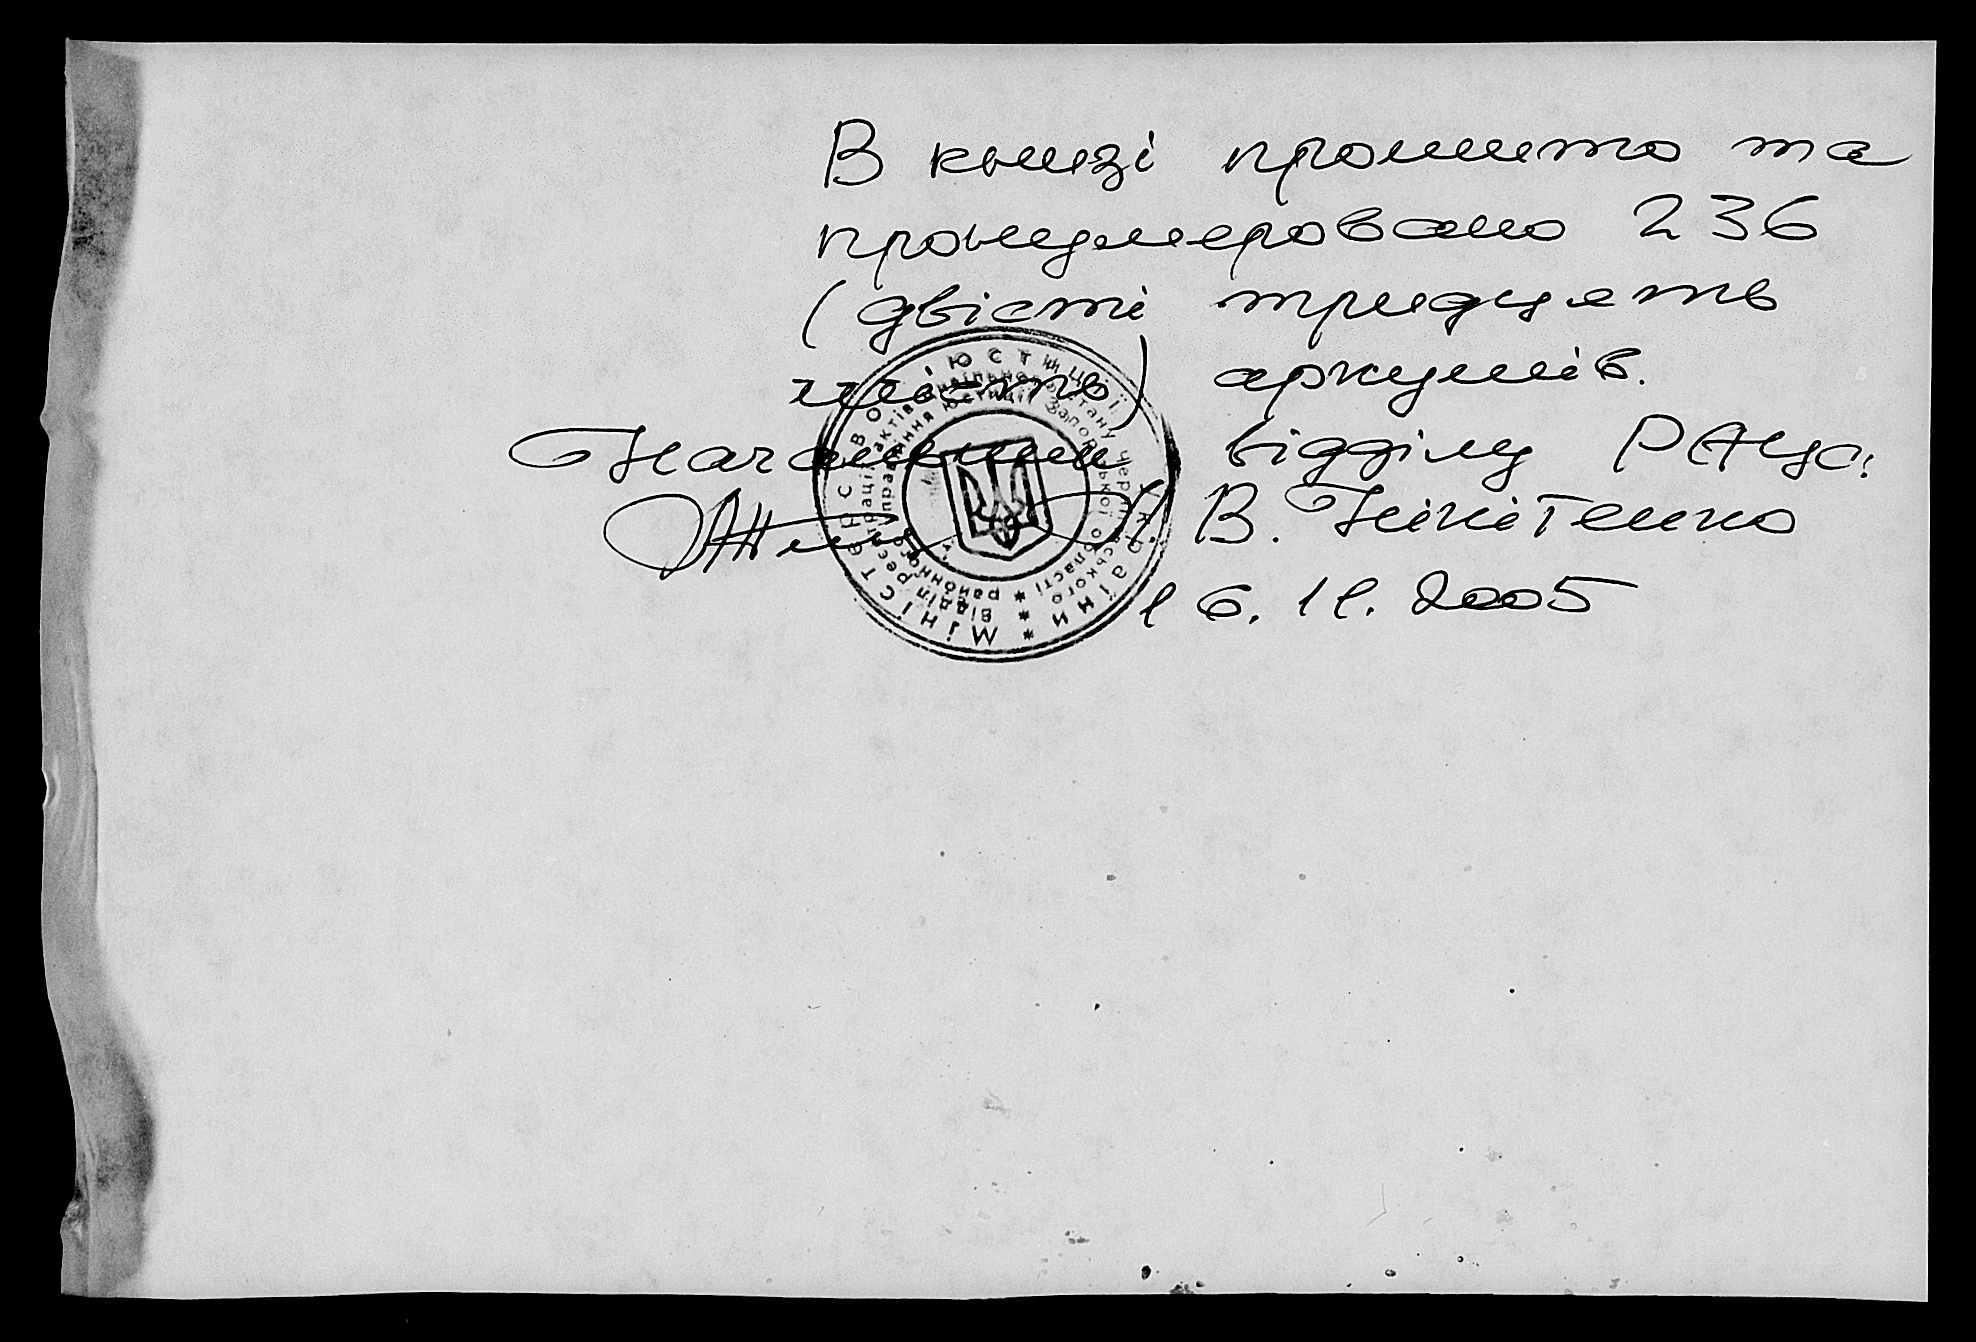 В книзі прошито та
пронумеровано 236
(двісті тридцять
шість) аркушів.
Начальник відділу РАЦС:
Л. В. Нікітенко
16.11.2005
Міністерство юстиції України
Відділ реєстрації актів цивільного стану
районного управління юстиції Запорізької області